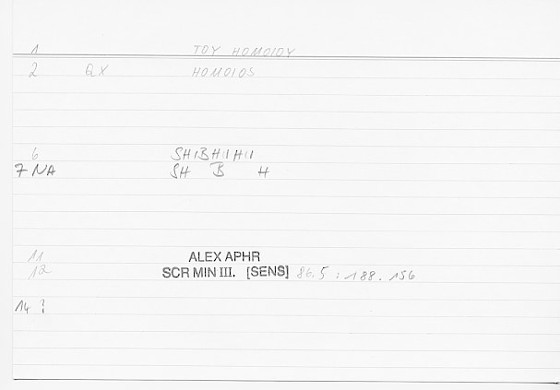 1 TOY HOMOIOY
2 QX HOMOIOS
6 SHIBHIHI
7 NA SH B H
11 ALEX APHR
12 SCR MIN III. [SENS] 86.5 : 188.156
14 :